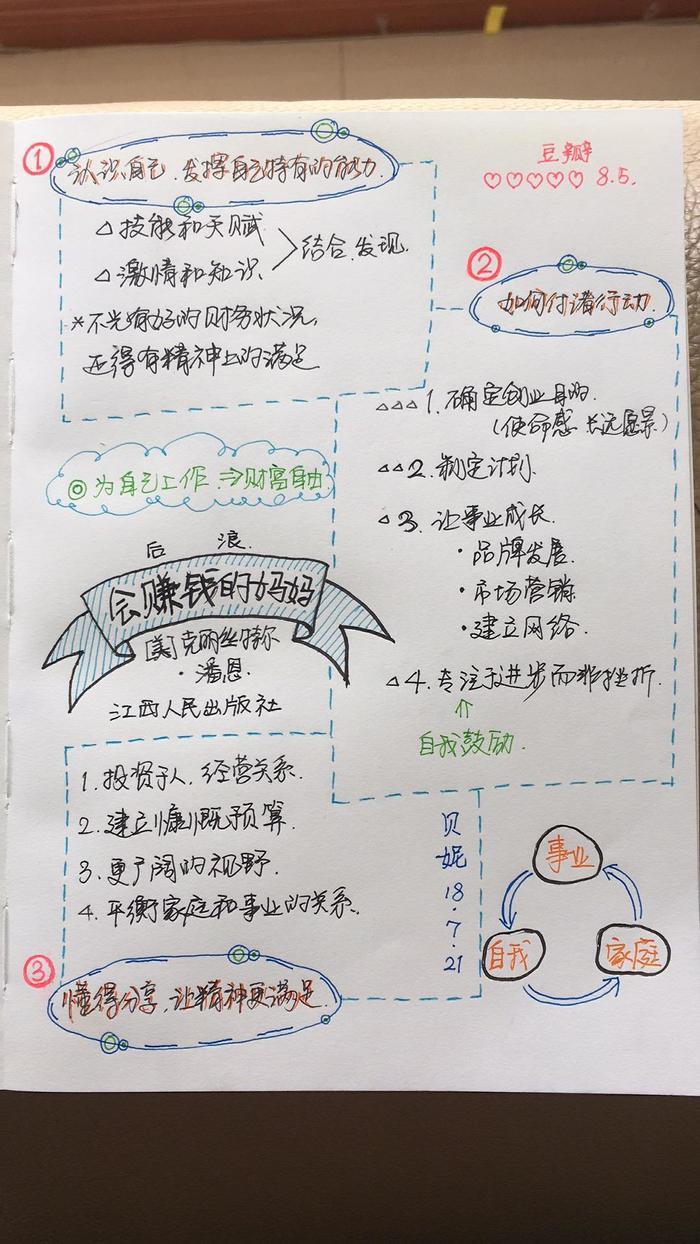 ① 认识自己、发挥自己特有的能力.
△ 技能和天赋
△ 激情和知识
结合、发现.
*不光有好的财务状况,
还得有精神上的满足
豆瓣
♡♡♡♡♡ 8.5.
② 如何付诸行动.
△△△1. 确定创业目的.
(使命感 长远愿景)
△△2. 制定计划.
△3. 让事业成长.
·品牌发展.
·市场营销.
·建立网络.
△4. 专注于进步而非挫折.
⇑
自我鼓励.
◎为自己工作 ⇒财富自由
后 浪.
会赚钱的妈妈
[美] 克丽丝特尔
·潘恩.
江西人民出版社
1. 投资于人, 经营关系.
2. 建立慷慨预算.
3. 更广阔的视野.
4. 平衡家庭和事业的关系.
③ 懂得分享, 让精神更满足.
贝妮18·7·21
事业
自我
家庭